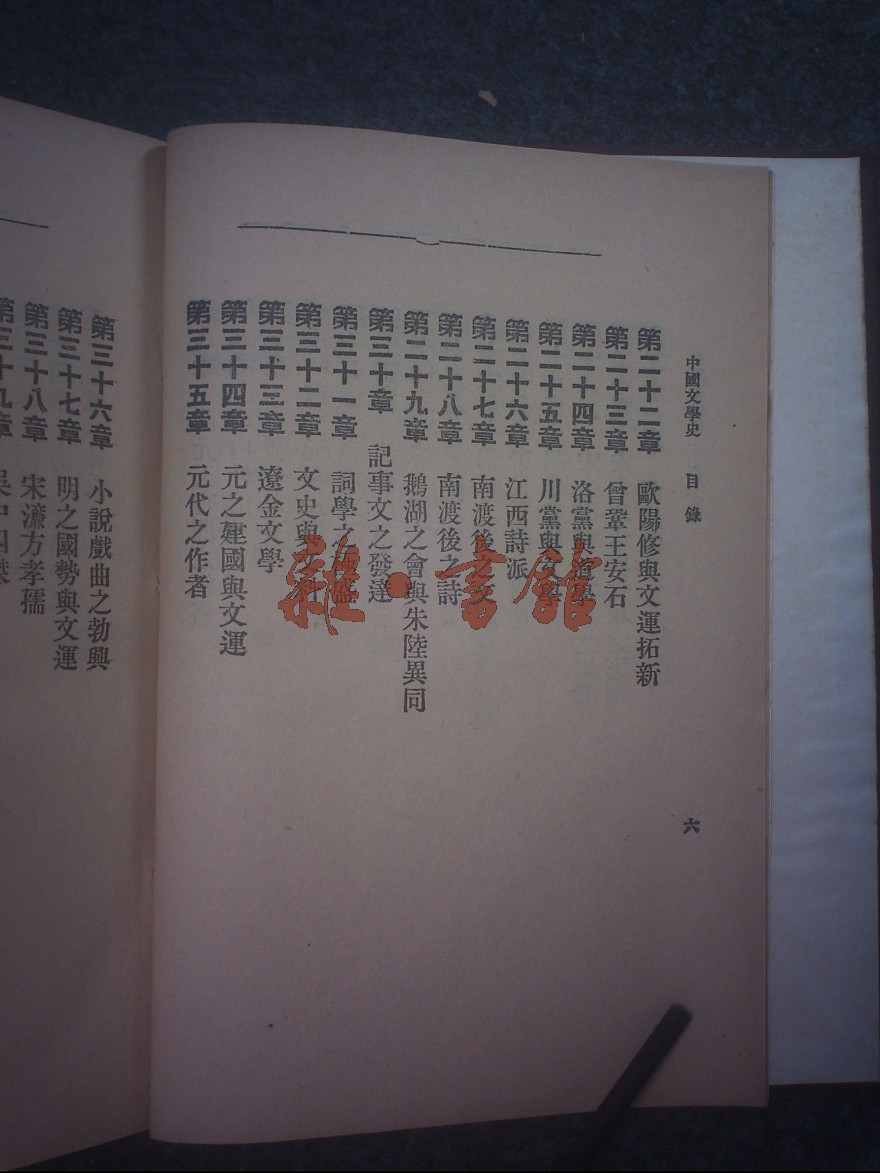 中國文學史 目錄 六
第二十二章 歐陽修與文運拓新
第二十三章 曾鞏王安石
第二十四章 洛黨與道學
第二十五章 川黨與文學
第二十六章 江西詩派
第二十七章 南渡後之文
第二十八章 南渡後之詩
第二十九章 鵝湖之會與朱陸異同
第三十章 記事文之發達
第三十一章 詞學之極盛
第三十二章 文史與文
第三十三章 遼金文學
第三十四章 元之建國與文運
第三十五章 元代之作者
第三十六章 小說戲曲之勃興
第三十七章 明之國勢與文運
第三十八章 宋濂方孝孺
第三十九章 吳中四傑
雜·書館